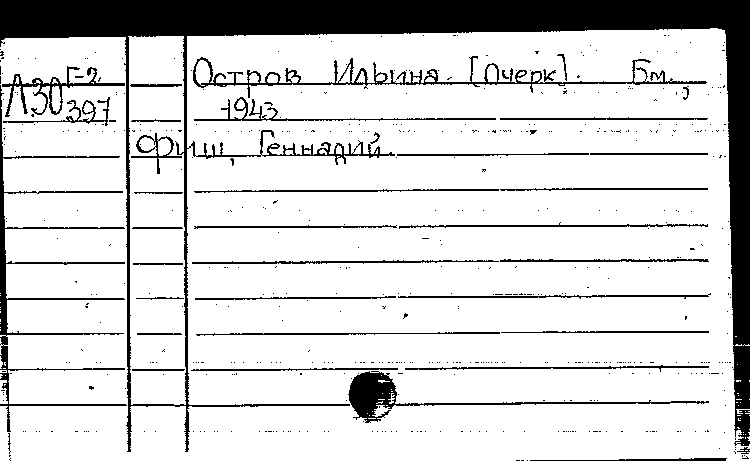 Л30 Г-2 Остров Ильина. [Очерк]. Бм.,
397 1943
Фиш, Геннадий.